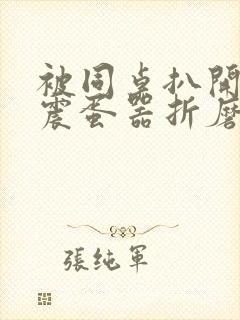 被同桌扒開
震蛋器折磨
張純軍